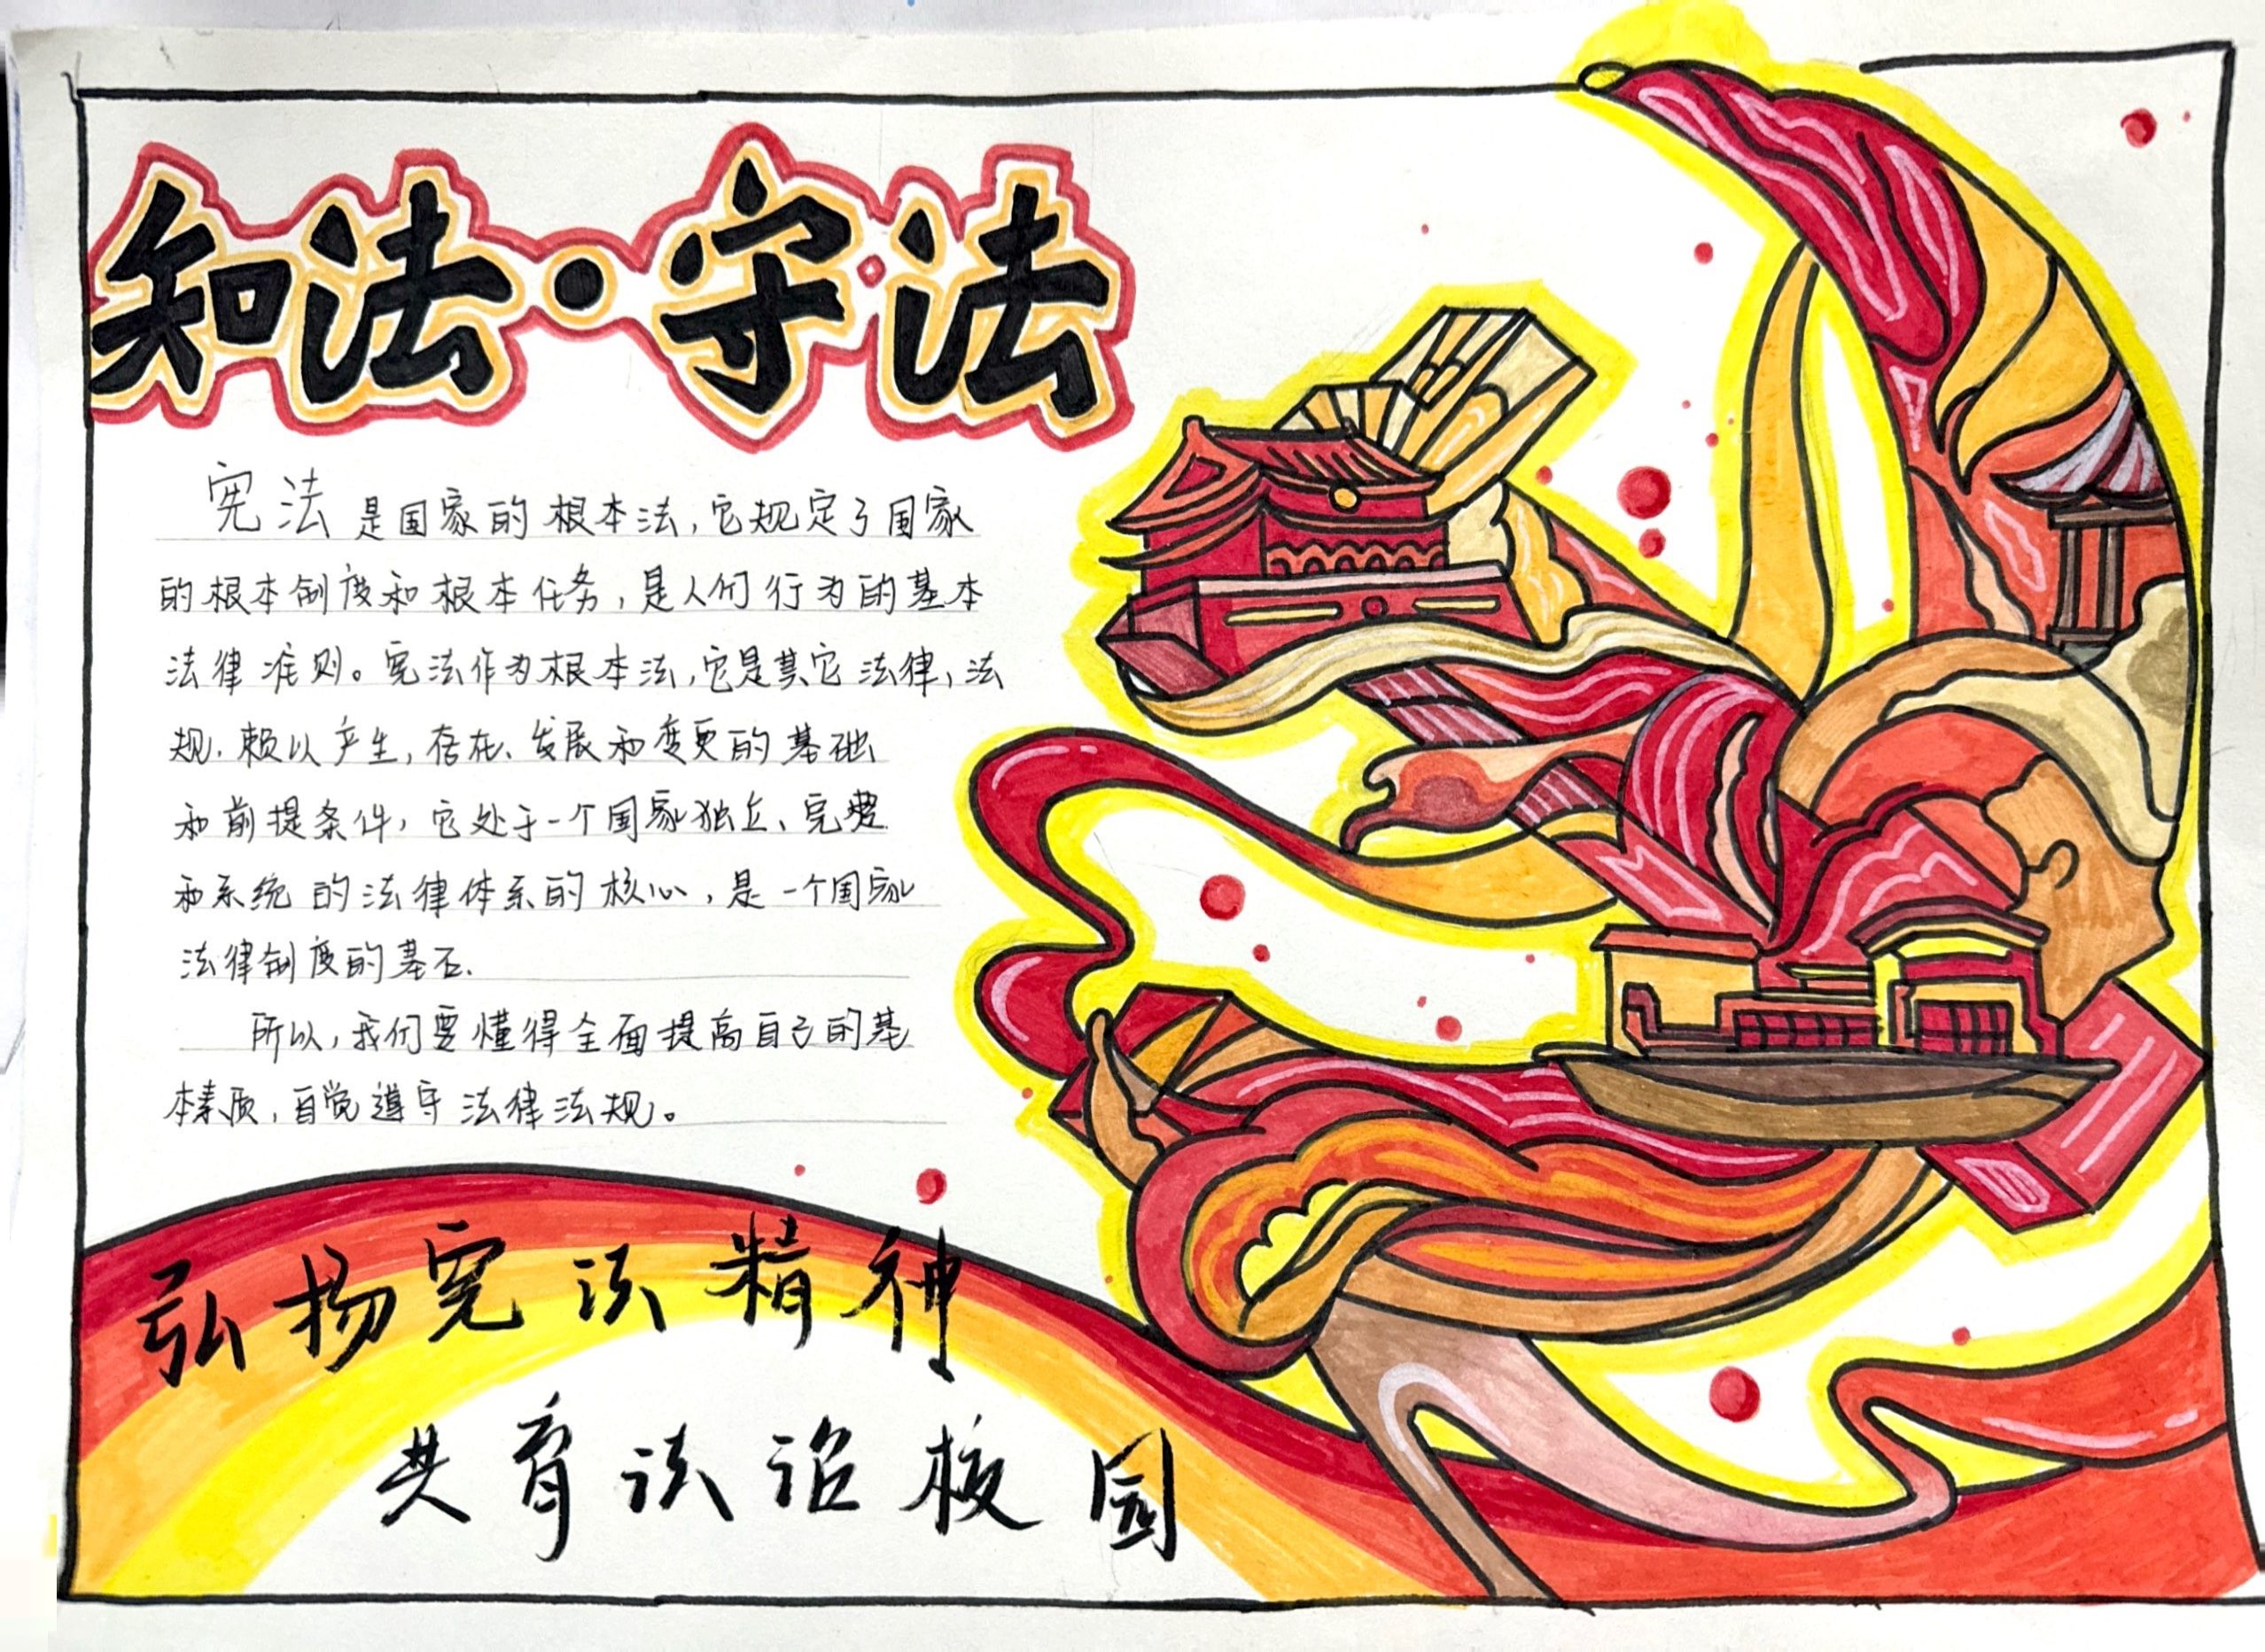 知法·守法
宪法是国家的根本法，它规定了国家
的根本制度和根本任务，是人们行为的基本
法律准则。宪法作为根本法，它是其它法律、法
规、赖以产生，存在、发展和变更的基础
和前提条件，它处于一个国家独立、完整
和系统的法律体系的核心，是一个国家
法律制度的基石.
所以，我们要懂得全面提高自己的基
本素质，自觉遵守法律法规。
弘扬宪法精神
共育法治校园